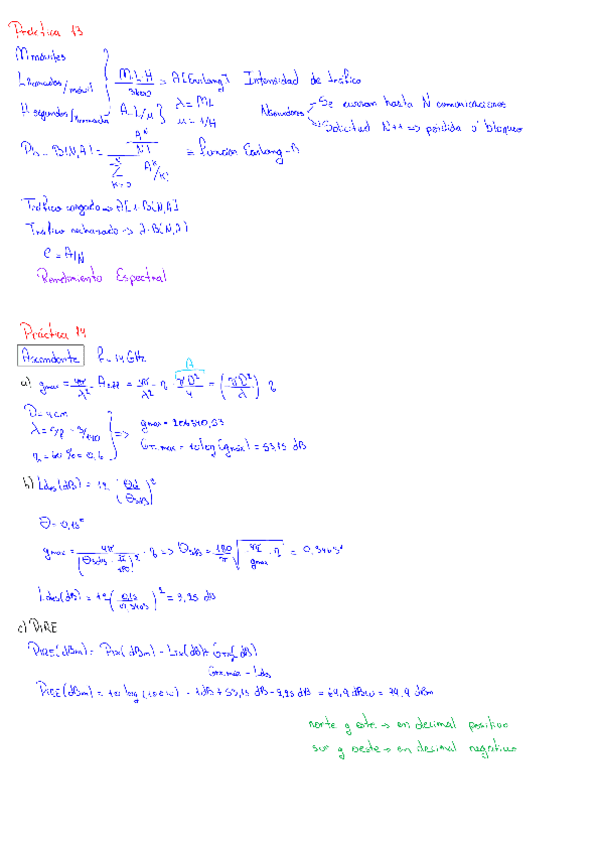 Práctica 13
M móviles
L llamadas/móvil
H segundos/llamada
M·L·H / 3600 = A [Earlang] Intensidad de tráfico
A = L/μ } λ = ML
μ = 1/H
Se cursan hasta N comunicaciones
Solicitud N++ => pérdida o bloqueo
= B(N,A) = (A^N / N!) / (Σ K=0 N A^K/K!) = función Earlang-B
Tráfico cargado => A[1-B(N,A)]
Tráfico rechazado -> A·B(N,A)
C = A/N
Rendimiento Espectral
Práctica 14
Ascendente f = 14 GHz
A
a) gmax = 4π/λ² · Aeff = 4π/λ² · η · πD²/4 = (πD/λ)² η
D = 4 cm
η = 60 % = 0,6
=> gmax =
Gmax = 10 log (gmax) = 53,15 dB
b) Ldes(dB) = 12 (θd/θ3dB)²
θ = 0,15°
gmax = 4π/(θ3dB · π/180)² · η => θ3dB = 180/π √(4π/gmax · η) = 0,3403°
Ldes(dB) = 12 (0,15/0,3403)² = 2,25 dB
c) PIRE
PIRE(dBm) = Ptx(dBm) - Ltx(dB) + Gtx(dB)
Gtxmax - Ldes
PIRE(dBm) = 10 log (100 W) - 1dB + 53,15 dB - 2,25 dB =
norte y este -> en decimal positivo
sur y oeste -> en decimal negativo